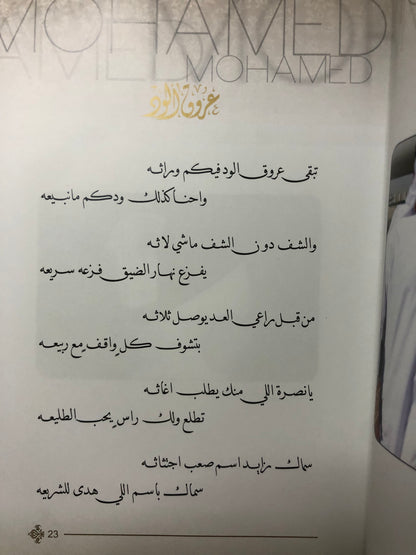 MOHAMED
MOHAMED
عروق الود
تبقى عروق الود فيكم وراثه
واحنا كذلك ودكم ما نبيعه
والشف دون الشف ماشي لاثه
يفزع نهار الضيق فزعه سريعه
من قبل راعي العد يوصل ثلاثه
بتشوف كلٍ واقفٍ مع ربيعه
يا نصرة اللي منك يطلب اغاثه
تطلع ولك راسٍ يحب الطليعه
سماك زايد اسم صعب اجتثاثه
سماك باسم اللي هدى للشريعه
23